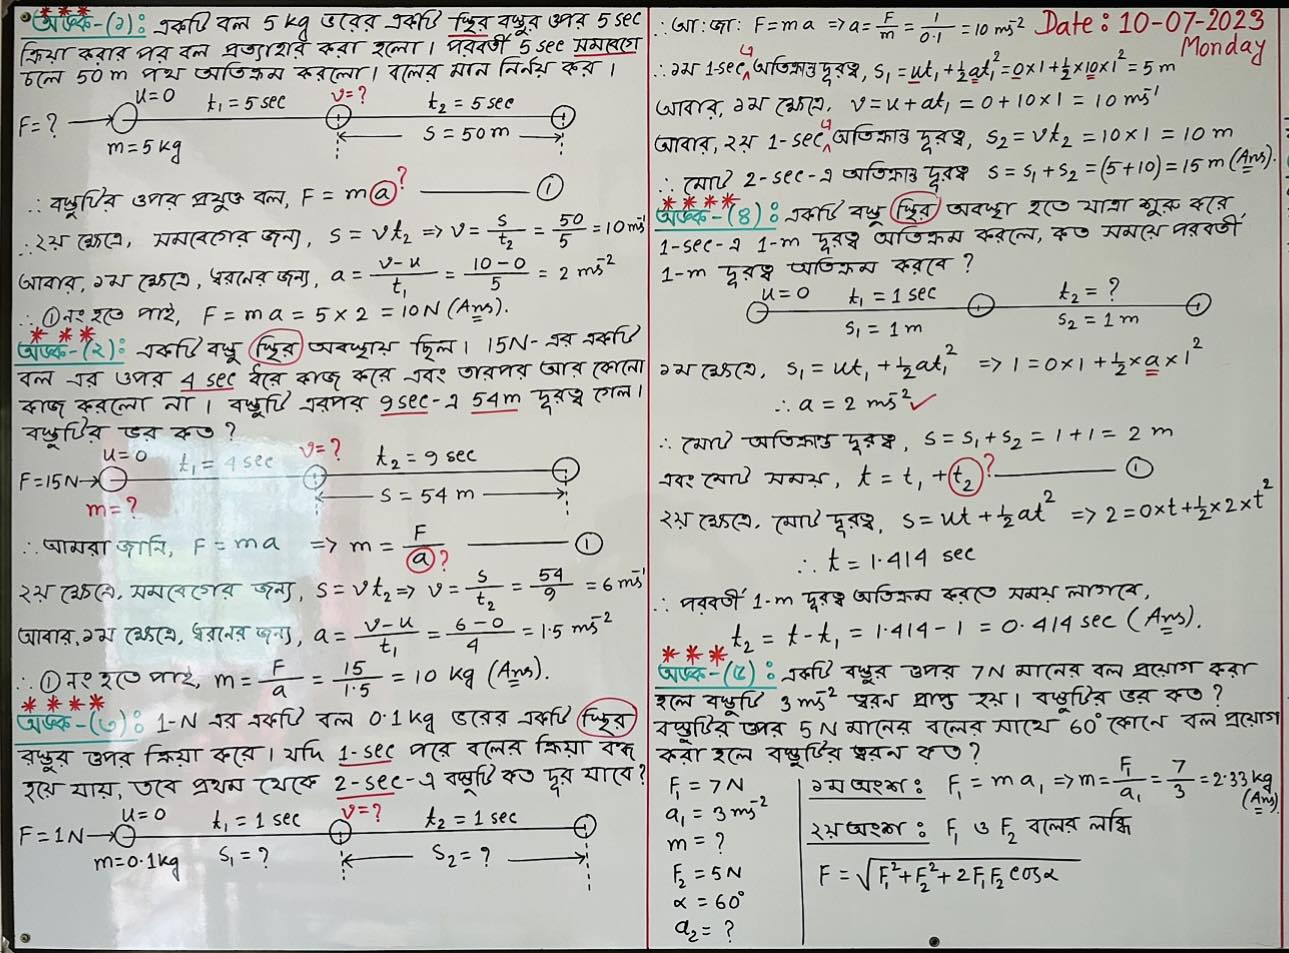 অঙ্ক-(১): একটি বল 5 kg ভরের একটি স্থির বস্তুর ওপর 5 sec
ক্রিয়া করার পর বল প্রত্যাহার করা হলো। পরবর্তী 5 sec সমবেগে
চলে 50 m পথ অতিক্রম করলো। বলের মান নির্নয় কর।
u=0 t₁ = 5 sec v=? t₂ = 5 sec
F=?
m=5 kg S = 50 m
∴ বস্তুটির ওপর প্রযুক্ত বল, F = ma ? ①
∴ ২য় ক্ষেত্রে, সমবেগের জন্য, S = vt₂ ⇒ v = S/t₂ = 50/5 = 10 ms⁻¹
আবার, ১ম ক্ষেত্রে, ত্বরনের জন্য, a = (v-u)/t₁ = (10-0)/5 = 2 ms⁻²
∴ ① নং হতে পাই, F = ma = 5 × 2 = 10N (Ans).
অঙ্ক-(২): একটি বস্তু স্থির অবস্থায় ছিল। 15N-এর একটি
বল এর ওপর 4 sec ধরে কাজ করে এবং তারপর আর কোনো
কাজ করলো না। বস্তুটি এরপর 9sec-এ 54m দূরত্ব গেল।
বস্তুটির ভর কত?
u=0 t₁ = 4 sec v=? t₂ = 9 sec
F=15N
m=? S = 54 m
∴ আমরা জানি, F = ma ⇒ m = F/a ? ①
২য় ক্ষেত্রে, সমবেগের জন্য, S = vt₂ ⇒ v = S/t₂ = 54/9 = 6 ms⁻¹
আবার, ১ম ক্ষেত্রে, ত্বরনের জন্য, a = (v-u)/t₁ = (6-0)/4 = 1.5 ms⁻²
∴ ① নং হতে পাই, m = F/a = 15/1.5 = 10 kg (Ans).
অঙ্ক-(৩): 1-N এর একটি বল 0.1kg ভরের একটি স্থির
বস্তুর ওপর ক্রিয়া করে। যদি 1-sec পরে বলের ক্রিয়া বন্ধ
হয়ে যায়, তবে প্রথম থেকে 2-sec-এ বস্তুটি কত দূর যাবে?
u=0 t₁ = 1 sec v=? t₂ = 1 sec
F=1N
m=0.1kg S₁ = ? S₂ = ?
∴ আ: জা: F=ma ⇒ a = F/m = 1/0.1 = 10 ms⁻²
Date: 10-07-2023
Monday
∴ ১ম 1-sec এ অতিক্রান্ত দূরত্ব, S₁ = ut₁ + ½at₁² = 0×1 + ½×10×1² = 5 m
আবার, ১ম ক্ষেত্রে, v = u + at₁ = 0 + 10×1 = 10 ms⁻¹
আবার, ২য় 1-sec এ অতিক্রান্ত দূরত্ব, S₂ = vt₂ = 10×1 = 10 m
∴ মোট 2-sec-এ অতিক্রান্ত দূরত্ব S = S₁+S₂ = (5+10) = 15 m (Ans).
অঙ্ক-(৪): একটি বস্তু স্থির অবস্থা হতে যাত্রা শুরু করে
1-sec-এ 1-m দূরত্ব অতিক্রম করলে, কত সময়ে পরবর্তী
1-m দূরত্ব অতিক্রম করবে?
u=0 t₁ = 1 sec t₂ = ?
S₁ = 1 m S₂ = 1 m
১ম ক্ষেত্রে, S₁ = ut₁ + ½at₁² ⇒ 1 = 0×1 + ½×a×1²
∴ a = 2 ms⁻² ✓
∴ মোট অতিক্রান্ত দূরত্ব, S = S₁+S₂ = 1+1 = 2 m
এবং মোট সময়, t = t₁ + t₂ ? ①
২য় ক্ষেত্রে, মোট দূরত্ব, S = ut + ½at² ⇒ 2 = 0×t + ½×2×t²
∴ t = 1.414 sec
∴ পরবর্তী 1-m দূরত্ব অতিক্রম করতে সময় লাগবে,
t₂ = t - t₁ = 1.414 - 1 = 0.414 sec (Ans).
অঙ্ক-(৫): একটি বস্তুর ওপর 7N মানের বল প্রয়োগ করা
হলে বস্তুটি 3 ms⁻² ত্বরন প্রাপ্ত হয়। বস্তুটির ভর কত?
বস্তুটির ওপর 5N মানের বলের সাথে 60° কোনে বল প্রয়োগ
করা হলে বস্তুটির ত্বরন কত?
F₁ = 7N
a₁ = 3 ms⁻²
m = ?
F₂ = 5N
α = 60°
a₂ = ?
১ম অংশ: F₁ = ma₁ ⇒ m = F₁/a₁ = 7/3 = 2.33 kg
(Ans)
২য় অংশ: F₁ ও F₂ বলের লব্ধি
F = √(F₁² + F₂² + 2F₁F₂ cosα)